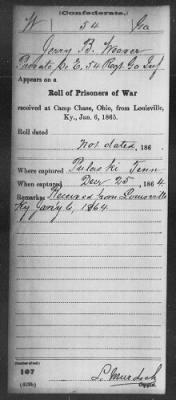 (Confederate.)
W 54 Ga
Jerry B. Weaver
Private, Co. E, 54 Regt. Ga Inf
Appears on a
Roll of Prisoners of War
received at Camp Chase, Ohio, from Louisville,
Ky., Jan. 6, 1865.
Roll dated
Not dated, 186 .
Where captured Pulaski Tenn
When captured Decr 25, 1864.
Remarks: Received from Louisville
Ky Jany 6, 1864
Number of roll:
107
(639b)
L. Murdock
Copyist.